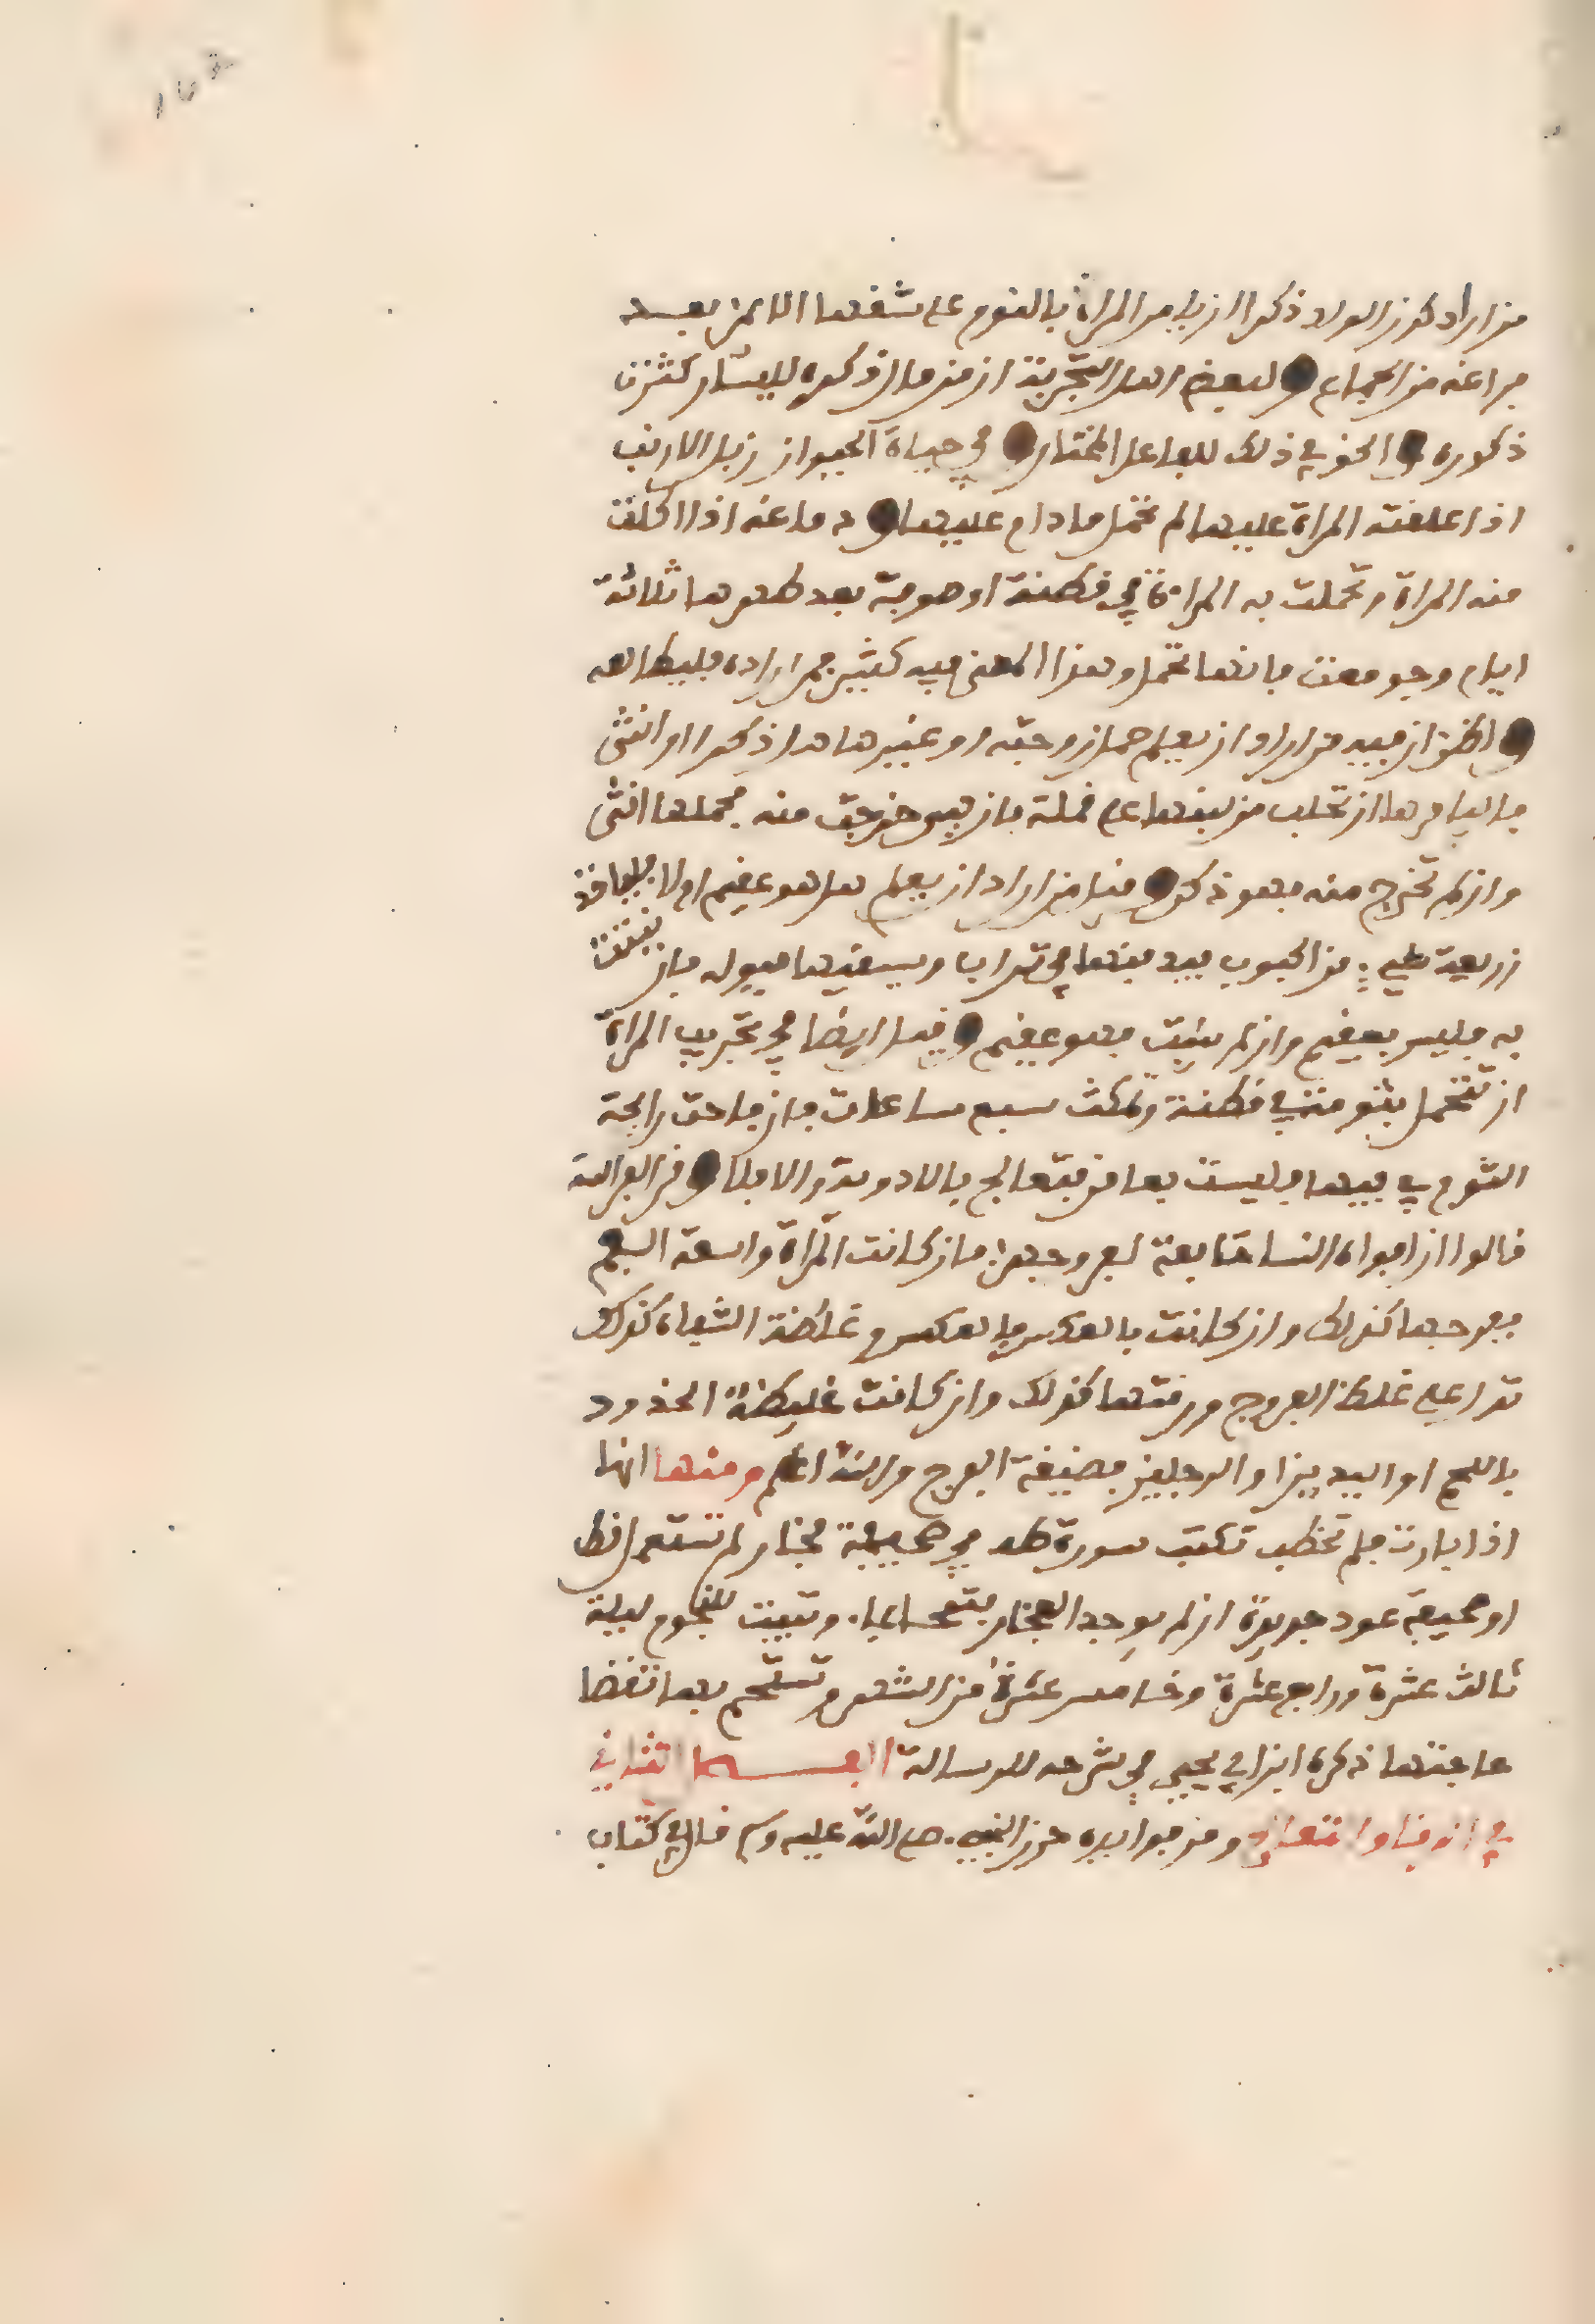 من اراد كون الولد ذكرا ان يامر المراة بالنوم على شقها الايمن بعد
فراغه من الجماع ولبعض اهل التجربة ان من مال ذكره لليسار كثرت
ذكوره والحق في ذلك للفاعل المختار وفي حياة الحيوان زبل الارنب
اذا علقته المراة عليها لم تحمل ما دام عليها ودماغه اذا اكلت
منه المراة وتحملت به المراة في قطنة او صوفة بعد طهرها ثلاثة
ايام وجومعت فانها تحمل وهذا المعنى فيه كثير فمن اراده فليطالعه
واظن ان فيه من اراد ان يعلم حمل زوجته او غيرها هل ذكرا او انثى
فاليامرها ان تحلب من لبنها على قملة فان هي خرجت منه فحملها انثى
وان لم تخرج منه فهو ذكر وقيل من اراد ان يعلم هل هو عقيم اولا فلياخذ
زريعة من الحبوب فيدفنها في تراب ويسقيها ببوله فان نبتت
به فليس بعقيم وان لم تنبت فهو عقيم وقيل ايضا في تجريب المراة
ان تتحمل بثومة في قطنة وتمكث سبع ساعات فان فاحت رايحة
الثوم في فيها فليست بعاقر فتعالج بالادوية والا فلا واهل الفراسة
قالوا ان افواه النسا تابعة لفروجهن فان كانت المراة واسعة الفم
ففرجها كذلك وان كانت بالعكس فالعكس وغلظة الشفاه كذلك
تدل على غلظ الفروج ورقتها كذلك وان كانت غليظة الخدود
باللحم او اليدين او الرجلين فضيقة الفرج والله اعلم ومنها انها
اذا بارت فلم تخطب تكتب سورة طه في صحيفة فخار لم تستعمل قط
او صحيفة عود جديدة ان لم يوجد الفخار وتبيت للنجوم ليلة
ثالث عشرة ورابع عشرة وخامس عشرة من الشهر وتستحم بها تقضا
حاجتها ذكره ابن ابي يحيى في شرحه للرسالة الفصل الثاني
في ومن فوايده حرز النبي صلى الله عليه وسلم قال في كتاب